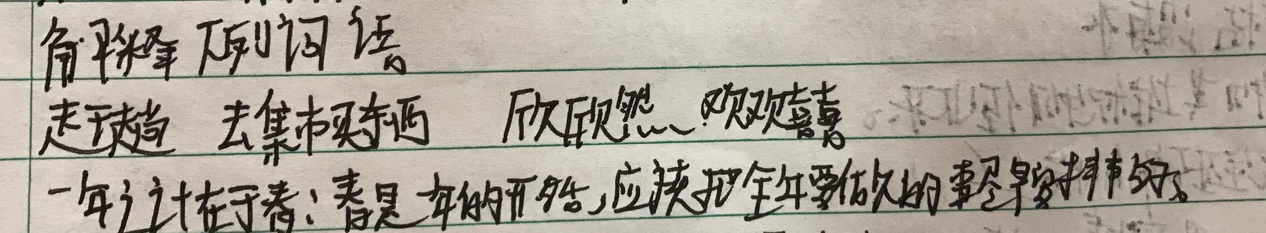 解释下列词语
走于趟 去集市买东西 欣欣然 欢欢喜喜
一年之计在于春:春是一年的开始,应该把全年要做的事尽早安排好。